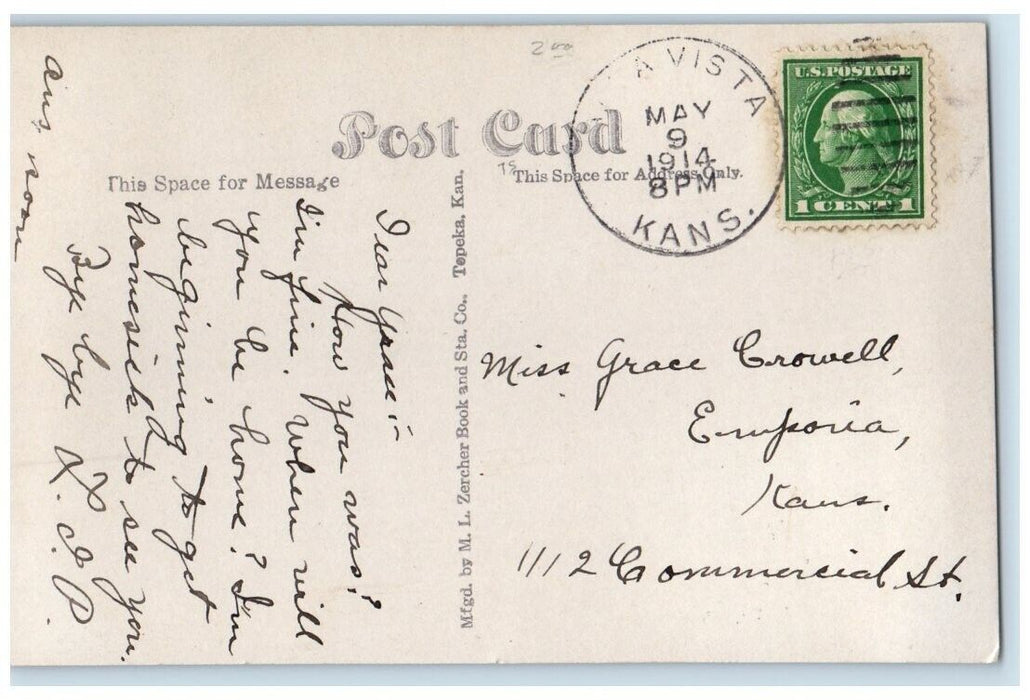 2 00
Post Card
This Space for Message
TS
This Space for Address Only.
A VISTA
MAY
9
1914
8PM
KANS.
U.S. POSTAGE
1 CENT 1
Mfgd. by M. L. Zercher Book and Sta. Co., Topeka, Kan.
Dear Grace:-
How you was?
I'm fine. When will
you be home? I'm
beginning to get
homesick to see you.
Bye bye L. I. P.
ans soon
Miss Grace Crowell,
Emporia,
Kans.
1112 Commercial St.